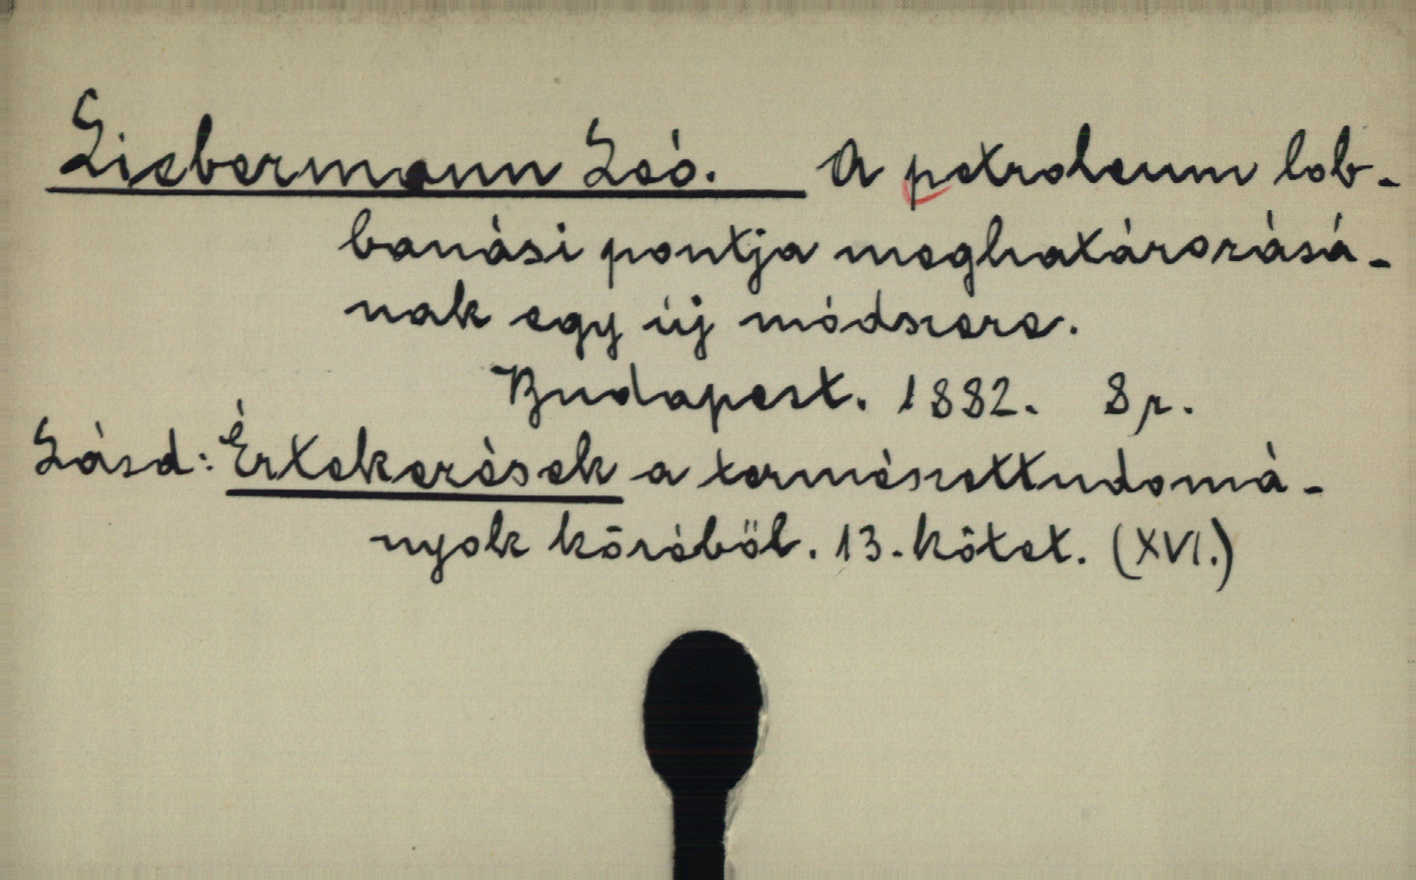 Liebermann Leó. A petroleum lob-
banási pontja meghatározásá-
nak egy új módszere.
Budapest. 1882. 8r.
Lásd: Értekezések a természettudomá-
nyok köréből. 13. kötet. (XVI.)